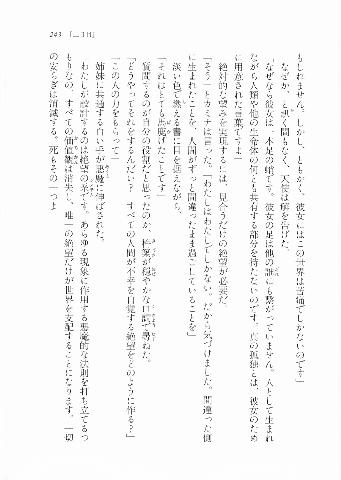 243　『二[十]月』
もしれません。しかし、ともかく、彼女にはこの世界は苦痛でしかないのです」
なぜか、と訊く間もなく、天使は解を告げた。
「なぜなら彼女は、本足の蛸です。彼女の足は他の誰にも繋がっていません。人として生まれ
ながら人類や他の生命体の何とも共有する部分を持たないのです。真の孤独とは、彼女のため
に用意された言葉ですよ」
絶対的な望みを実現するには、見合うだけの絶望が必要だ。
「そう」とカミナは言った。「わたしはわたしでしかない。だから気づけました。間違った側
に生まれたことを、人間がずっと間違ったまま過ごしていることを」
淡い色で燃える書に目を据えながら、
「それはとても馬鹿げたことです」
質問するのが自分の役割だと思ったのか、松葉が穏やかな口調で尋ねた。
「どうやってそれをするんだい？　すべての人間が不幸を自覚する絶望をどのように作る？」
「この人の力をもらって」
姉妹に共通する白い手が悪魔に伸ばされた。
「わたしが設計するのは絶望の系です。あらゆる現象に作用する悪魔的な法則を打ち立てるつ
もりなの。すべての価値観は消失し、唯一の絶望だけが世界を支配することになります。一切
の安らぎは消滅する。死もその一つよ